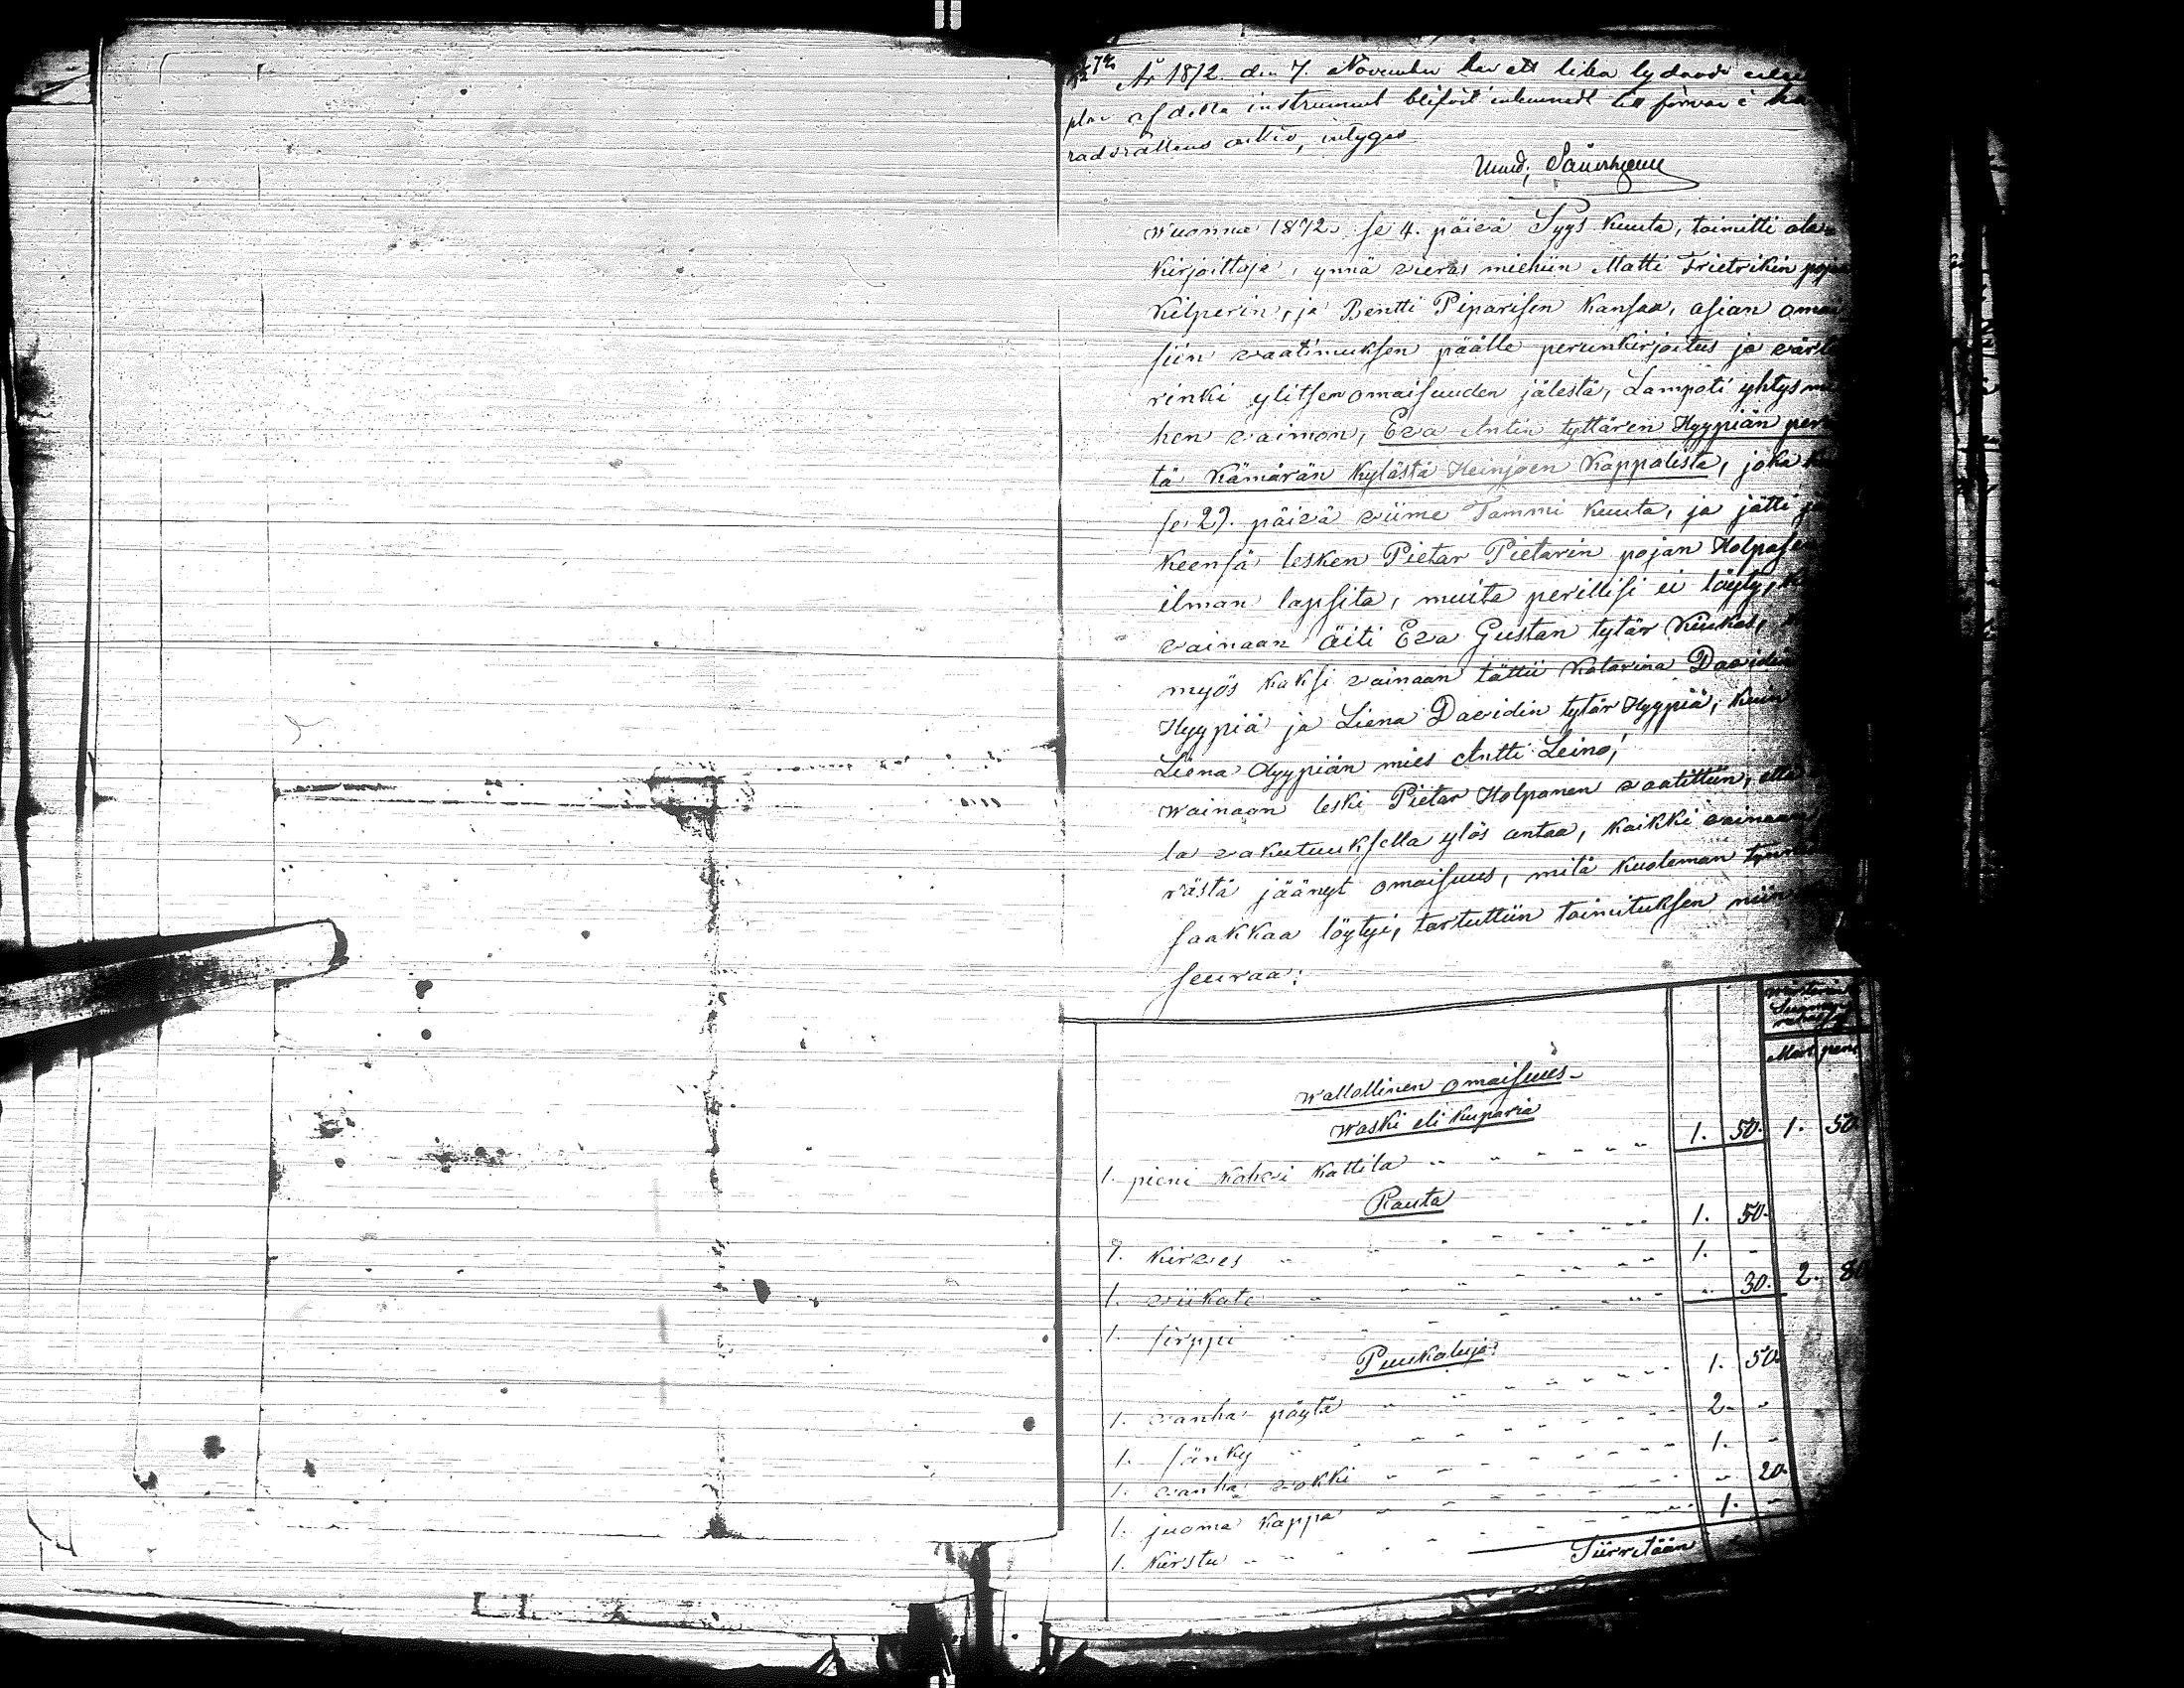 År 1872. den 7. November har ett lika lydande
plar af detta instrument blifvit inlemnadt till förvar i
radsrättens arkiv, intygas
Wuonna 1872. se 4. päivä Syys kuuta, toimitti ala
kirjoittaja, ynnä vieras miehiin Matti Frietrikin pojan
Kilperin, ja Bentti Piparisen kansaa, asian omai
siin vaatimuksen päälle perunkirjoitus ja värk
rinki ylitsen omaisuuden jälestä, Lampoti yhtys mi
hen vaimon, Eva Antin tyttären Hyypiän peru
tä Kämärän kylästä Heinjoen Kappalista, joka
se 29. päivä viime Tammi kuuta, ja jätti jä
keensä lesken Pietar Pietarin pojan Holpasen
ilman lapsita, muita perillisi ei löyty,
vainaan äiti Eva Gustan tytär Kiukas,
myös kaksi vainaan tättii Katarina Davidin
Hyypiä ja Liena Davidin tytär Hyypiä, kuin
Liena Hyypiän mies Antti Leino,
Wainaan leski Pietar Holpanen vaatittiin, että
la vakutuuksella ylös antaa, kaikki vainaan
rästä jäänyt omaisuus, mitä kuoleman
saakkaa löytyi, tartuttiin toimituksen niin
seuraa:
Mark penn
Wallollinen omaisuus
Waski eli kuparia
1. pieni kahvi kattila " " " " " 1. 50. 1. 50.
Rauta
1. kirves " " " " " 1. 50.
1. viikate " " " " " 1. "
1. sirppi " " " " " " 30. 2. 80
Puukaluja
1. vanha pöytä " " " " " 1. 50.
1. sänky " " " " " 2. "
1. vanha vokki " " " " " 1. "
1. juoma kappa " " " " " " 20.
1. kirstu " " " " " 1. "
Siirretään